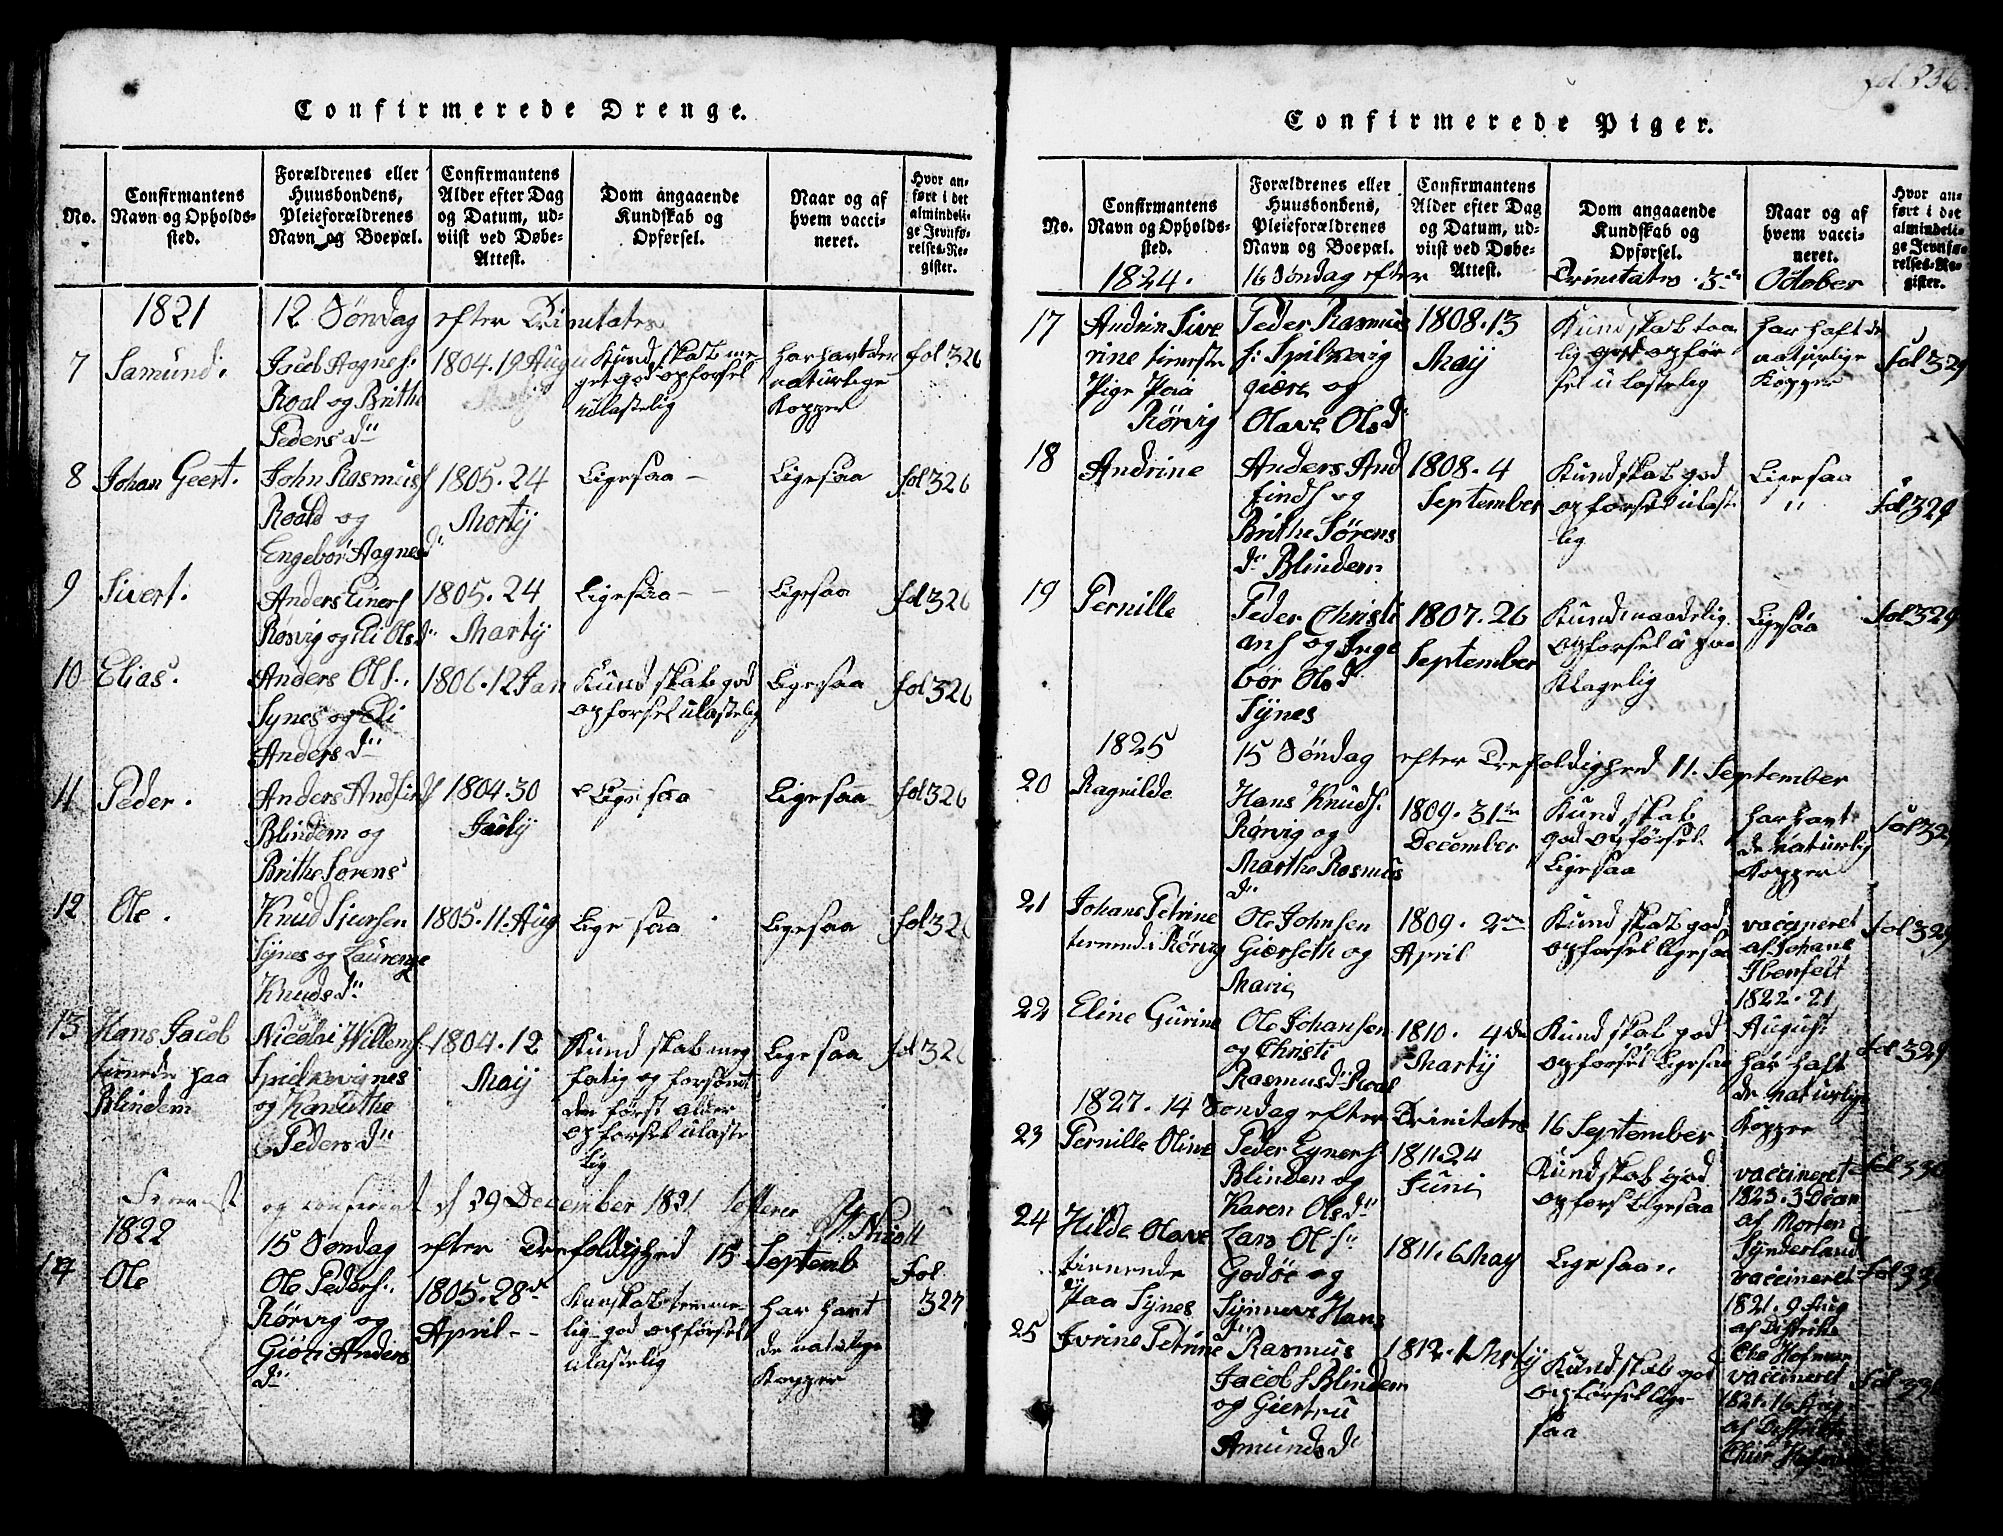 Confirmerede Drenge.
No.
Confirmantens
Navn og Opholds-
sted.
Forældrenes eller
Huusbondens,
Pleieforældrenes
Navn og Boepæl.
Confirmantens
Alder efter Dag
og Datum, ud-
viist ved Døbe-
Attest.
Dom angaaende
Kundskab og
Opførsel.
Naar og af
hvem vacci-
neret.
Hvor an-
ført i det
almindeli-
ge Jevnfø-
relses-Re-
gister.
1821 12 Søndag efter Trinitatis
7
Samund.
Jacob Aagnes.
Roal og Brithe
Peders d.
1804. 19 Augu
Kundskab me-
get god opforsel
ulastelig
har havt den
naturlige
Kopper
fol 326
8
Johan Geert.
John Rasmus
Roald og
Engebor Aagnes d.
1805. 24
Martij
Ligesaa -
Ligesaa
fol 326
9
Sivert.
Anders Einers
Rørvig og Eli Ols d.
1805. 24
Martij
Ligesaa - -
Ligesaa
fol 326
10
Elias.
Anders Ols.
Synes og Eli
Anders d.
1806. 12 Jan
Kundskab god
opforsel ulastelig
Ligesaa
fol 326
11
Peder.
Anders Andfinds
Blindem og
Brithe Sorens
1804. 30
July
Ligesaa
Ligesaa
fol 326
12
Ole.
Knud Siursen
Synes og Laurenze
Knuds d.
1805. 11. Aug
Lige saa
Ligesaa
fol 326
13
Hans Jacob
tienende paa
Blindem
Nicolai Willems.
Spilkevignes
og Kanuthe
Peders d.
1804. 12
Maij
Kund skab meg
ulaste
lig
Ligesaa
fol 326
og conferent d 29 December 1821
1822 15 Søndag efter Trefoldighed 15 Septemb
14
Ole
Ole Peders.
Rørvig og
Giøri Anders
d.
1805. 28de
April - -
Kunskab temme-
lig god opførsel
ulastelig
har havt
de naturlige
Kopper
Fol.
327
Confirmerede Piger.
No.
Confirmantens
Navn og Opholds-
sted.
Forældrenes eller
Huusbondens,
Pleieforældrenes
Navn og Boepæl.
Confirmantens
Alder efter Dag
og Datum, ud-
viist ved Døbe-
Attest.
Dom angaaende
Kundskab og
Opførsel.
Naar og af
hvem vacci-
neret.
Hvor an-
ført i det
almindeli-
ge Jevnfø-
relses-Re-
gister.
1824. 16 Søndag efter Trinitatis. 3de October
17
Andrin Sive
rine tieneste
Pige paa
Rørvig
Peder Rasmus
s. Spilkevig
giære og
Olave Ols d.
1808. 13
Maij
Kundskab taa
lig god opfør
sel ulastelig
har haft de
naturlige
Kopper
fol 329
18
Andrine
Anders And
finds og
Brithe Sørens
d. Blindem
1808. 4
September
Kundskab god
opforsel ulast
lig
Ligesaa
"
fol 329
19
Pernille
Peder Christi
ans og Inge
bor Ols d
Synes
1807. 26
September
Kund maadelig
opforsel u paa
klagelig
Ligesaa
fol 329
1825 15 Søndag efter Trefoldighed 11. September
20
Ragnilde
Hans Knuds.
Rørvig og
Marthe Rasmus
d.
1809. 31te
December
Kundskab
god opførsel
Ligesaa
har havt
de naturlig
Kopper
fol 329
21
Johane Petrine
tienend i Rørvig
Ole Johnsen
Giærseth og
Marie
1809. 2den
April
Kundskab god
opforsel ligesaa
vaccineret
af Johane
Ibenfelt
1822. 21
August
fol 329
22
Eline Gurine
Ole Johansen
og Christi
Rasmus d. Roal
1810. 4de
Martij
Kundskab god
opførsel Ligesaa
har haft
de naturlige
Kopper
fol 329
1827. 14 Søndag efter Trinitatis 16 September
23
Pernille Oline
Peder Eyners.
Blinden og
Karen Ols d.
1811. 24
Juni
Kundskab god
opforsel Ligesaa
vaccineret
af Morten
Synderland
fol 330
24
Hilde Olave
tienende
paa Synes
Lars Ols
Godøe og
Synneve Hans
d.
1811. 6 May
Ligesaa
vaccineret
1821. 9 Aug
af Distrikts
25
Jorine Petrine
Rasmus
Jacobs Blindem
og Giertru
Amunds d.
1812. 1 Marty
Kundskab god
opførsel lige
saa
vaccineret
1821. 16 Aug
af Distrikts